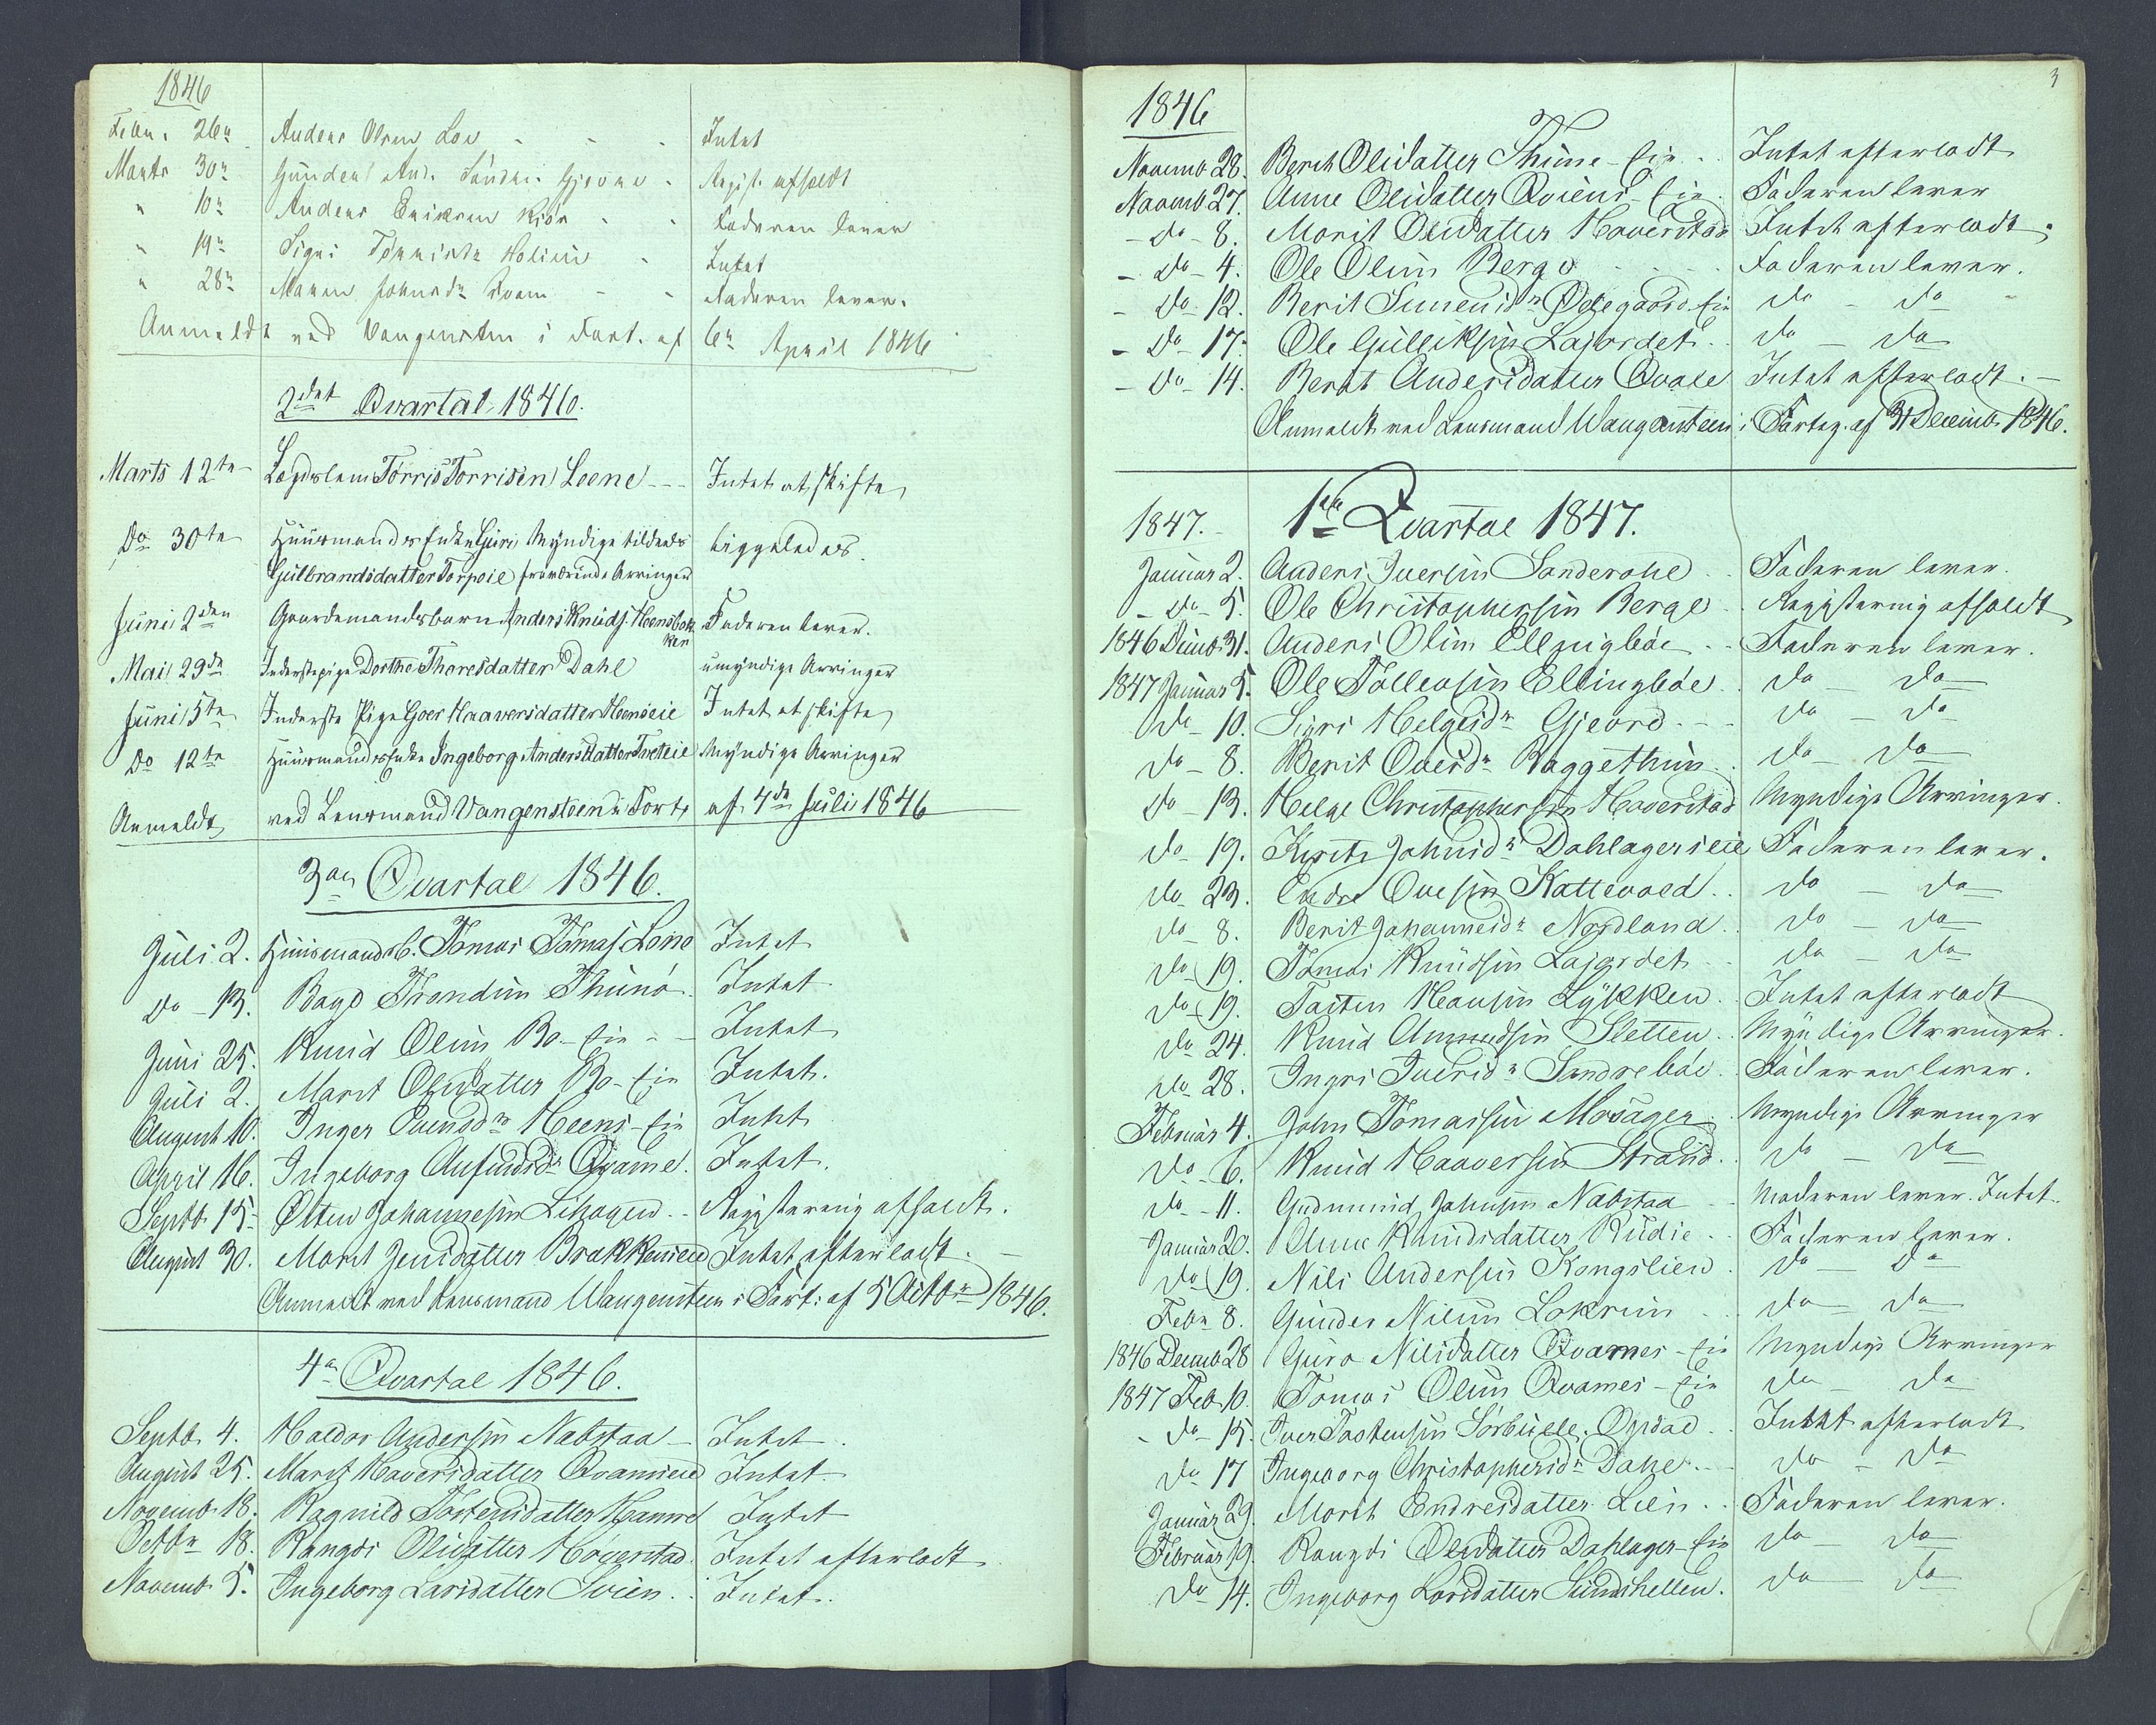 1846
Febr. 26n Anders Olsen Loe - - - Intet
Marts 30n Gunder And. Søndre Gjerne - Regist. afholdt
" 10n Anders Eriksen Kjør - - Faderen lever
" 19n Sigri Tommisdr - Intet
" 28n Maren Johnsdr Qvam - - Faderen lever.
Anmeldt ved Vangensten i Fort. af 6n April 1846
2det Qvartal 1846.
Marts 12te Lægdslem Torris Torrisen Loene - - - Intet at skifte
Do 30te Huusmands Enke Guri Myndige tildeels liggeledes.
Gulbrandsdatter Torpeie fraværende Arvinger
Juni 2den Gaardemandsbarn Anders Knuds. Heensbak Faderen lever.
ken
Mai 29de Inderstepige Dorthe Thoresdatter Dahl umyndige Arvinger
Juni 5te Inderste Pige Goer Haaversdatter Heenseie Intet at skifte
Do 12te Huusmands Enke Ingeborg Andersdatter Tveteie Myndige Arvinger
Anmeldt ved Lensmand Vangensteen i Fort. af 4de Juli 1846
3die Qvartal 1846.
Juli 2. Huusmandsb. Tomas Tomas. Lono Intet
Do - 13. Bagd Trondsen Thunø Intet
Juni 25. Knud Olsen Bo - Eie - - Intet
Juli 2. Marit Olsdatter Bo - Eie Intet.
August 10. Inger Svendsdr Heens - Eie Intet
April 16. Ingeborg Anfindsdr Qvame. Intet.
Septb. 15. Østen Johannesen Lihagen - - Registrering afholdt.
August 30. Marit Jensdatter Brækkenseie Intet efterladt. -
Anmeldt ved Lensmand Wangensteen i Fort: af 5 Octbr 1846.
4de Qvartal 1846.
Septb. 4. Haldor Andersen Nabstaa - Intet.
August 25. Marit Haversdatter Qvamseie Intet -
Novemb. 18. Ragnild Tostensdatter Hamre Intet
Octbr 18. Rangdi Olsdatter Høverstad. Intet efterladt
Novemb. 5. Ingeborg Larsdatter Svien. . Intet.
3
1846
Novemb. 28. Berit Olsdatter Thune - Eie . . Intet efterladt
Novemb. 27. Anne Olsdatter Qviens - Eie. Faderen lever
- do - 8. Marit Olsdatter Haverstad Intet efterladt.
- do - 4. Ole Olsen Berge . . . . Faderen lever.
- do - 12. Berit Simensdr Ødegaard Eie do - do -
- do - 17. Ole Gulliksen Lajordet . . do - do
- do - 14. Berit Andersdatter Qvale Intet efterladt. -
Anmeldt ved Lensmand Wangensteen i Forteg. af 31 Decemb. 1846.
1847. 1ste Qvartal 1847.
Januar 2. Anders Iversen Sanderohe . . Faderen lever.
- do - 5. Ole Christophersen Berge . . Registrering afholdt
1846 Decmb. 31. Anders Olsen Ellingbøe . . Faderen lever.
1847 Januar 5. Ole Tollefsen Ellingbøe. do - do
do - 10. Sigri Helgesdr Gjeord. - - do - do
do - 8. Berit Ovesdr Baggethun . do - do
do - 13. Helge Christophersen Haverstad Myndige Arvinger.
do - 19. Kjersti Johnsdr Dahlagerseie Faderen lever.
do - 23. Endre Ovesen Kattevold . . do - do
do - 8. Berit Johannesdr Nordland . do - do
do - 19. Tomas Knudsen Lajordet - - do - do
do - 19. Tosten Hansen Løkken . . Intet efterladt
do - 24. Knud Amundsen Sletten . . Myndige Arvinger.
do - 28. Ingri Iversdr Søndrebøe. Faderen lever.
Februar 4. John Tomassen Mosager . Myndige Arvinger
do - 6. Knud Haaversen Strand. do - do
do - 11. Gudmund Johnsen Nabstaa - - Moderen lever. Intet.
Januar 20. Anne Knudsdatter Rudie. . Faderen lever.
do - 19. Nils Andersen Kongslien. do - do
Febr 8. Gunder Nilsen Løkren do - do
1846 Decmb. 28 Guro Nilsdatter Qvames - Eie Myndige Arvinger
1847 Feb. 10. Tomas Olsen Qvames - Eie do - do
- do - 15. Iver Tostensen Sørbuelle. Opdad . . Intet efterladt
do - 17 Ingeborg Christophersdr Dahl. - - do - do
Januar 29. Marit Endresdatter Lien . . Faderen lever.
Februar 19. Rangdi Olsdatter Dahlager - Eie do - do
do - 14. Ingeborg Larsdatter Sundshellen. do - do